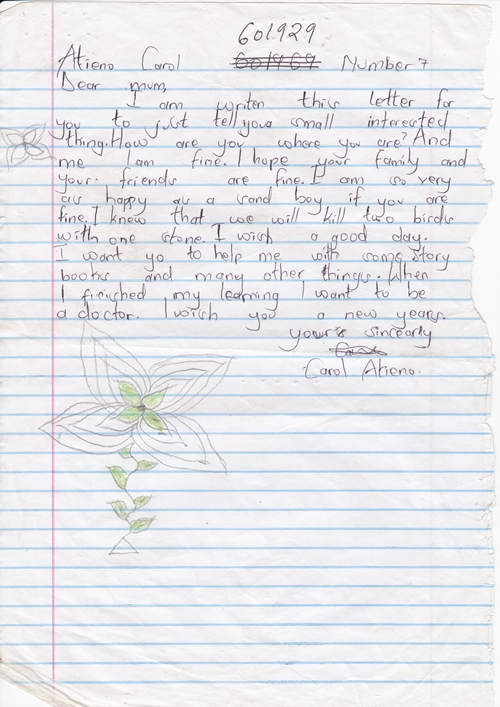 601929
Atieno Carol 601969 Number 7
Dear mum,
I am writen this letter for
you to just tell youa small interested
thing. How are you where you are? And
me I am fine. I hope your family and
your friends are fine. I am so very
as happy as a sand boy if you are
fine. I knew that we will kill two birds
with one stone. I wish a good day.
I want yo to help me with some story
books and many other things. When
I finished my learning I want to be
a doctor. I wish you a new years.
yours sincearly
Carol Atieno.